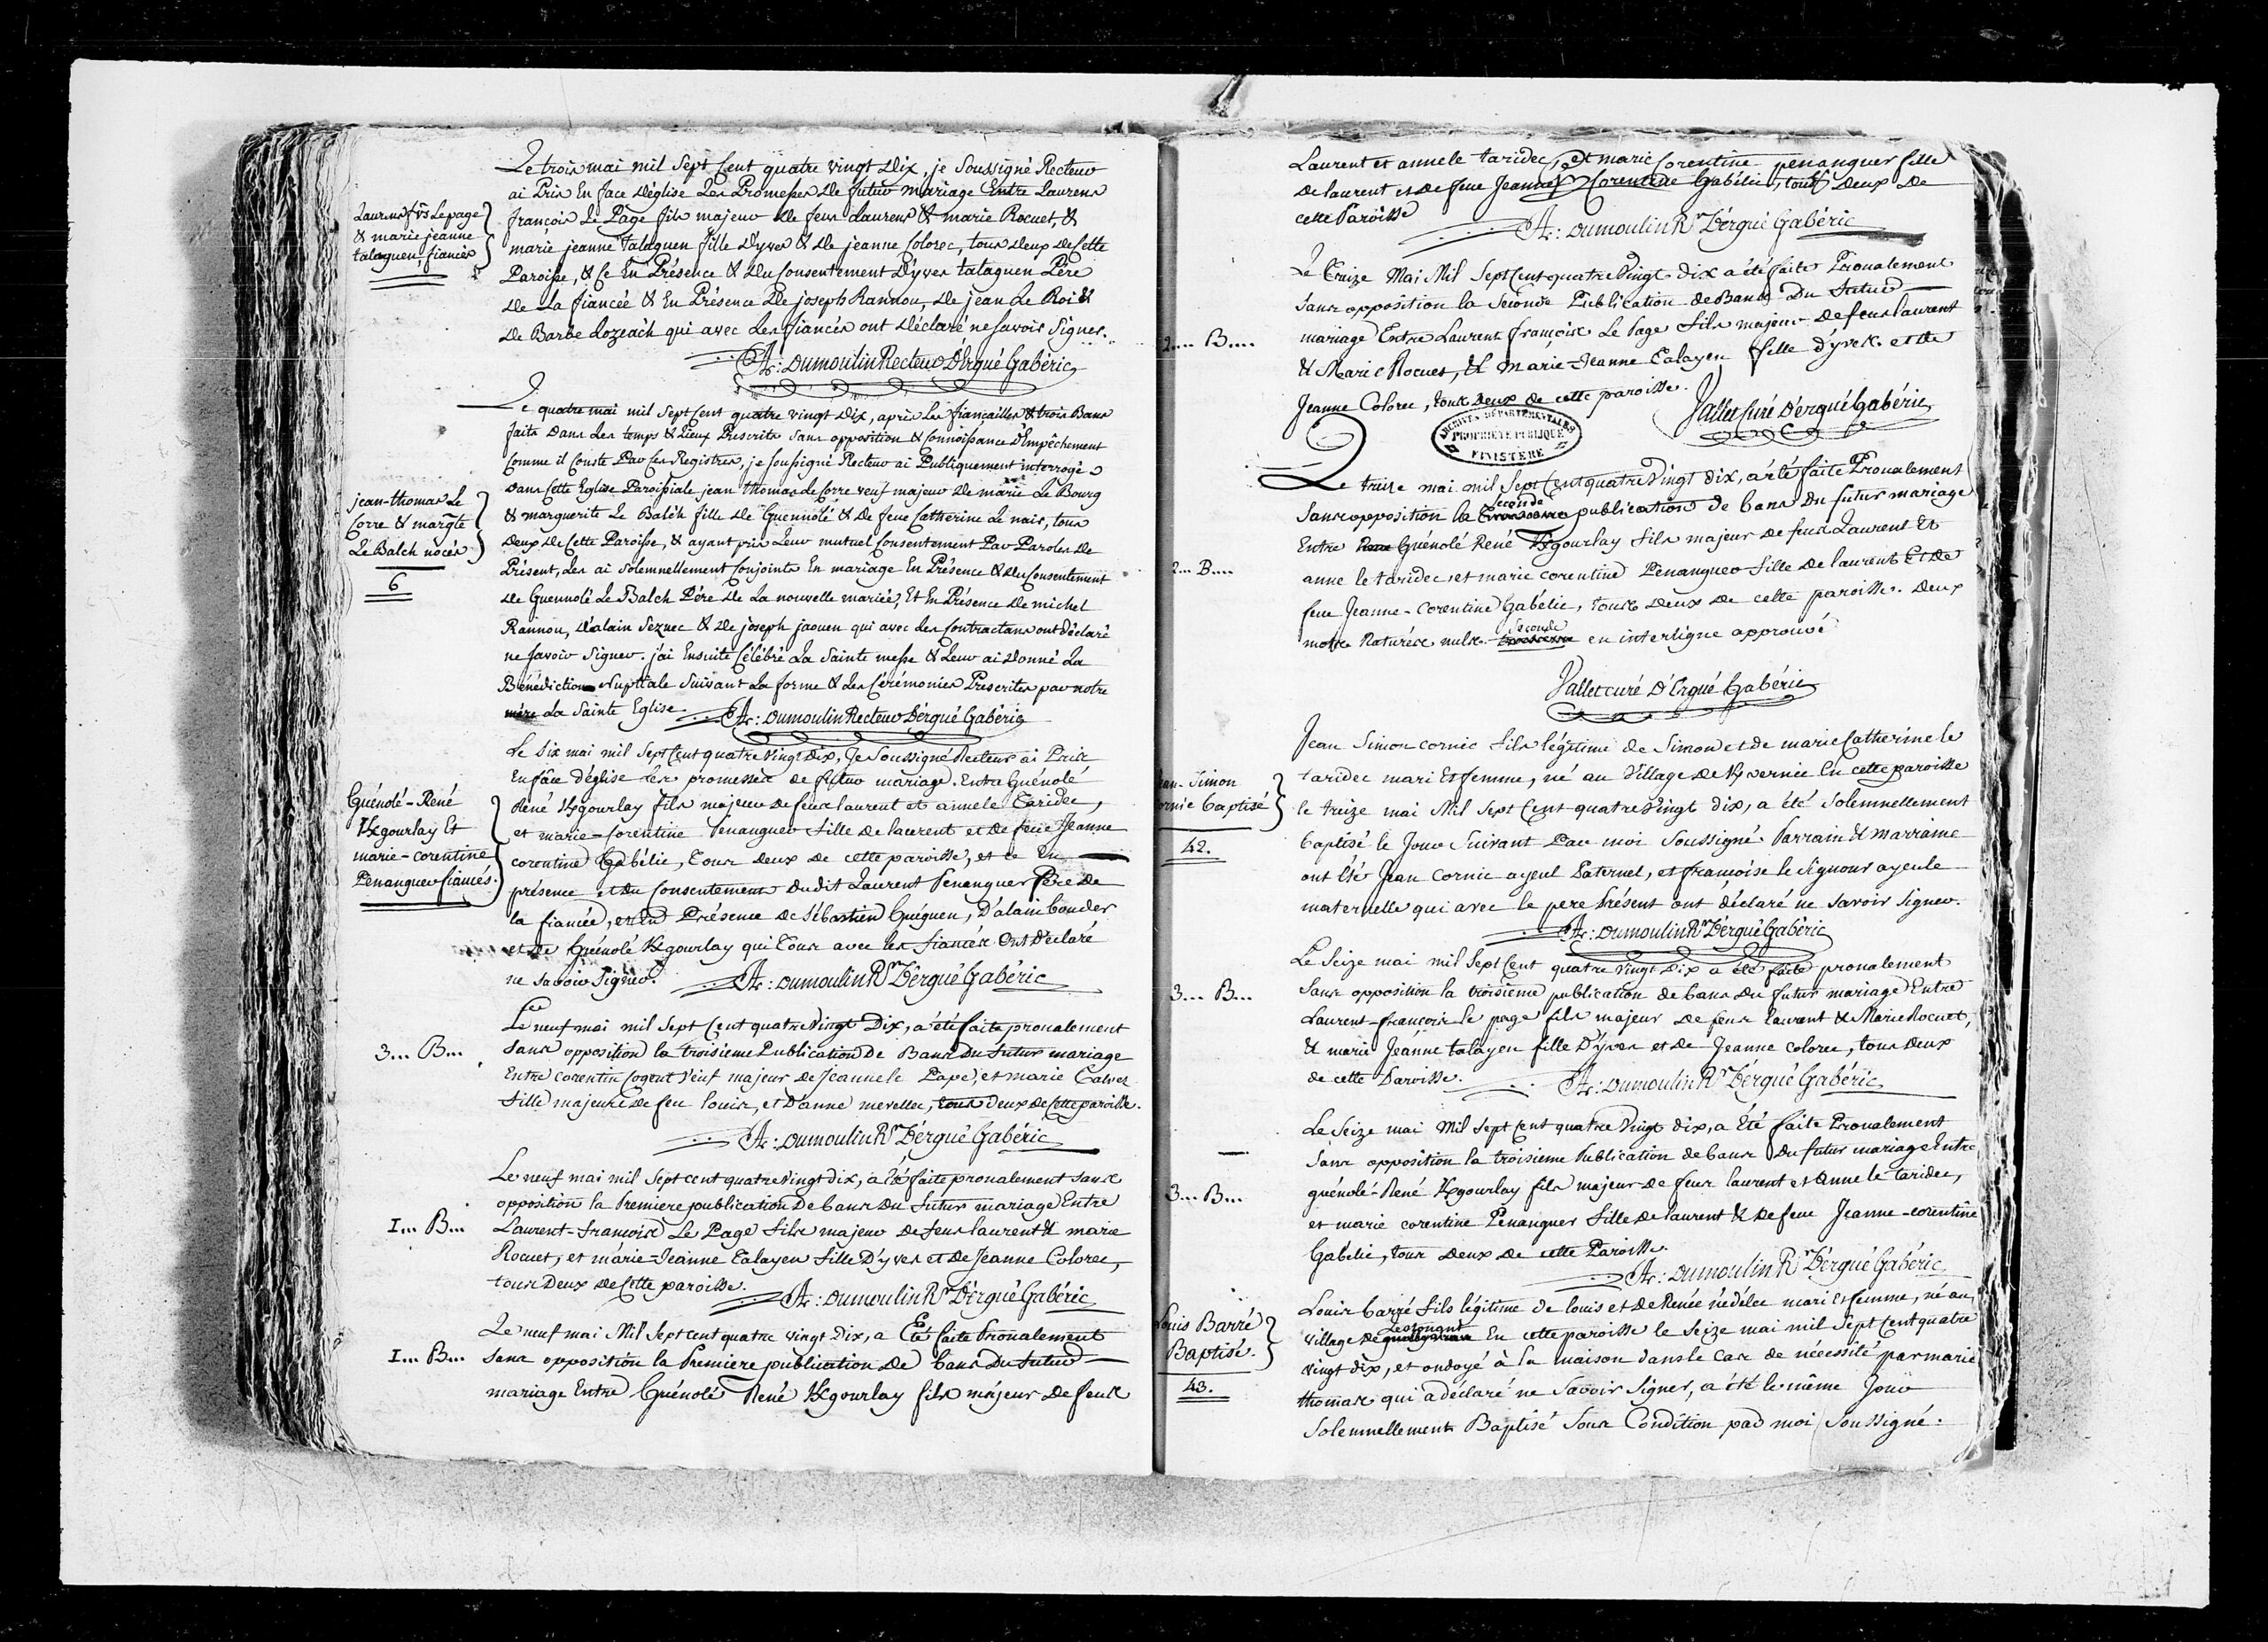 Le trois mai mil Sept Cent quatre vingt Dix, je Soussigné Recteur
ai Pris En face d'église Les Promesses De futur mariage Entre Laurens
Laurens frs Lepage
& marie jeanne
talaguen, fiancés
françois Le Page fils majeur de feus Laurens & marie Rocuet, &
marie jeanne Talaguen fille d'yves & De jeanne Colorec, tous Deux De Cette
Paroisse, & Ce En Présence & Du Consentement D'yves talaguen Père
De La fiancée & En Présence De joseph Rannou, De jean Le Roi &
De Barbe Lozeach qui avec Les fiancés ont Déclaré ne Savoir Signer.
At: Dumoulin Recteur D'Ergué Gabéric
Le quatre mai mil Sept Cent quatre vingt Dix, après Les fiançailles & trois Bans
faits Dans Les temps & Lieux Prescrits Sans opposition & Connoissance D'Empêchement
Comme il Conste Par Ces Registres, je Soussigné Recteur ai Publiquement interrogé
jean-thomas Le
Corre & margte
Le Balch nocés
6
Dans Cette Eglise Paroissiale jean thomas Le Corre veuf majeur De marie Le Bourg
& marguerite Le Balch fille De Guennolé & De feue Catherine Le nair, tous
Deux De Cette Paroisse, & ayant pris Leur mutuel Consentement Par Paroles De
Présent, Les ai Solemnellement Conjoints En mariage En Présence & Du Consentement
De Guennolé Le Balch Père De La nouvelle mariée, Et En Présence De michel
Rannou, D'alain Seznec & De joseph jaouen qui avec Les Contractans ont Déclaré
ne Savoir Signer. j'ai Ensuite Célébré La Sainte messe & Leur ai Donné La
Bénédiction Nuptiale Suivant La forme & Les Cérémonies Prescrites par notre
mère La Sainte Eglise. At: Dumoulin Recteur D'ergué Gabéric
Le Six mai mil Sept Cent quatre vingt Dix, Je Soussigné Recteur ai Pris
En face d'église Les promesses de futur mariage Entre Guénolé
Guénolé-René
Kgourlay Et
marie-corentine
Penanguer fiancés.
René Kgourlay fils majeur de feus laurent et anne le Taridec,
et marie-Corentine Penanguer fille de laurent et de feue Jeanne
corentine Gabélic, Tous deux de cette paroisse, et ce En
présence et du Consentement Dudit Laurent Penanguer Père De
la fiancée, et En Présence de Sébastien Guéguen, D'alain Couder
et De Guénolé Kgourlay qui Tous avec les fiancés Ont Déclaré
ne savoir Signer. At: Dumoulin Rr D'ergué Gabéric
3... B...
Le neuf mai mil Sept Cent quatre Vingt Dix, a été faite pronalement
Sans opposition la troisieme Publication De Bans Du futur mariage
Entre Corentin Cogent Veuf majeur de Jeanne le Pape, et marie Calvez
fille majeure de feu louis, et D'anne mevellec, tous Deux de Cette paroisse.
At: Dumoulin Rr D'ergué Gabéric
Le neuf mai mil Sept cent quatre Vingt dix, a été faite pronalement sans
opposition la Premiere publication De bans Du futur mariage Entre
I... B...
Laurent-François Le Page fils majeur de feus laurent & marie
Rocuet, et marie-Jeanne Talayen fille D'yves et De Jeanne Colorec,
tous Deux de Cette paroisse. At: Dumoulin Rr D'ergué Gabéric
Le neuf mai Mil Sept cent quatre vingt Dix, a Eté faite Pronalement
I... B...
sans opposition la Premiere publication De bans Du futur
mariage Entre Guénolé René Kgourlay fils majeur De feus
Laurent et anne le taridec, et marie Corentine penanguer fille
de laurent et de feue Jeanne Corentine Gabélic, tous Deux De
cette Paroisse
At: Dumoulin Rr D'ergué Gabéric
Le Treize Mai Mil Sept Cent quatre Vingt Dix a été faite Pronalement
Sans opposition la Seconde Publication de Bans Du futur
2.... B....
mariage Entre Laurent françois Le Page fils majeur De feus laurent
& Marie Rocuet, & Marie-Jeanne Talayen fille d'yves et de
Jeanne Colorec, tous Deux de cette paroisse.
Vallet Curé D'ergué Gabéric
ARCHIVES DÉPARTEMENTALES
PROPRIÉTÉ PUBLIQUE
FINISTÈRE
Le treize mai mil Sept Cent quatre Vingt Dix, a été faite Pronalement
Sans opposition la Seconde publication de bans du futur mariage
Entre Guénolé René Kgourlay fils majeur de feus Laurent Et
2... B....
anne le taridec, et marie corentine Penanguer fille de laurent Et De
feue Jeanne-Corentine Gabélic, tous Deux De cette paroisse. Deux
mots Raturés nuls. Seconde en interligne approuvé
Vallet curé D'Ergué Gabéric
Jean Simon cornic fils légitime de Simon et de marie Catherine le
Jean-Simon
Cornic baptisé
42.
taridec mari Et femme, né au Village de Kvernic En cette paroisse
le treize mai Mil Sept Cent quatre Vingt dix, a été Solemnellement
baptisé le Jour Suivant Par moi Soussigné. Parrain & Marraine
ont été Jean Cornic ayeul Paternel, et françoise le Signour ayeule
maternelle qui avec le pere Présent ont déclaré ne savoir Signer.
At: Dumoulin Rr D'ergué Gabéric
Le Seize mai mil Sept Cent quatre Vingt Dix a été faite pronalement
3... B...
Sans opposition la troisième publication de bans Du futur mariage Entre
Laurent-françois le page fils majeur de feus laurent & Marie Rocuet,
& marie Jeanne talayen fille D'yves et de Jeanne colorec, tous Deux
de cette Paroisse. At: Dumoulin Rr D'ergué Gabéric
Le Seize mai Mil Sept Cent quatre Vingt dix, a Eté faite Pronalement
Sans opposition la troisieme Publication de bans Du futur mariage Entre
3... B...
guénolé-René Kgourlay fils majeur de feus laurent et Anne le taridec,
et marie corentine Penanguer fille de laurent & De feue Jeanne-corentine
Gabélic, tous Deux de cette Paroisse.
At: Dumoulin Rr D'ergué Gabéric
Louis barré fils légitime de louis et de Renée nédélec mari et femme, né au
Louis Barré
Baptisé.
43.
village de Lestonant En cette paroisse le Seize mai mil Sept Cent quatre
vingt dix, et ondoyé à la maison dans le Cas de nécessité par marie
thomas qui a déclaré ne Savoir Signer, a été le même Jour
Solemnellement Baptisé Sous Condition par moi Soussigné.